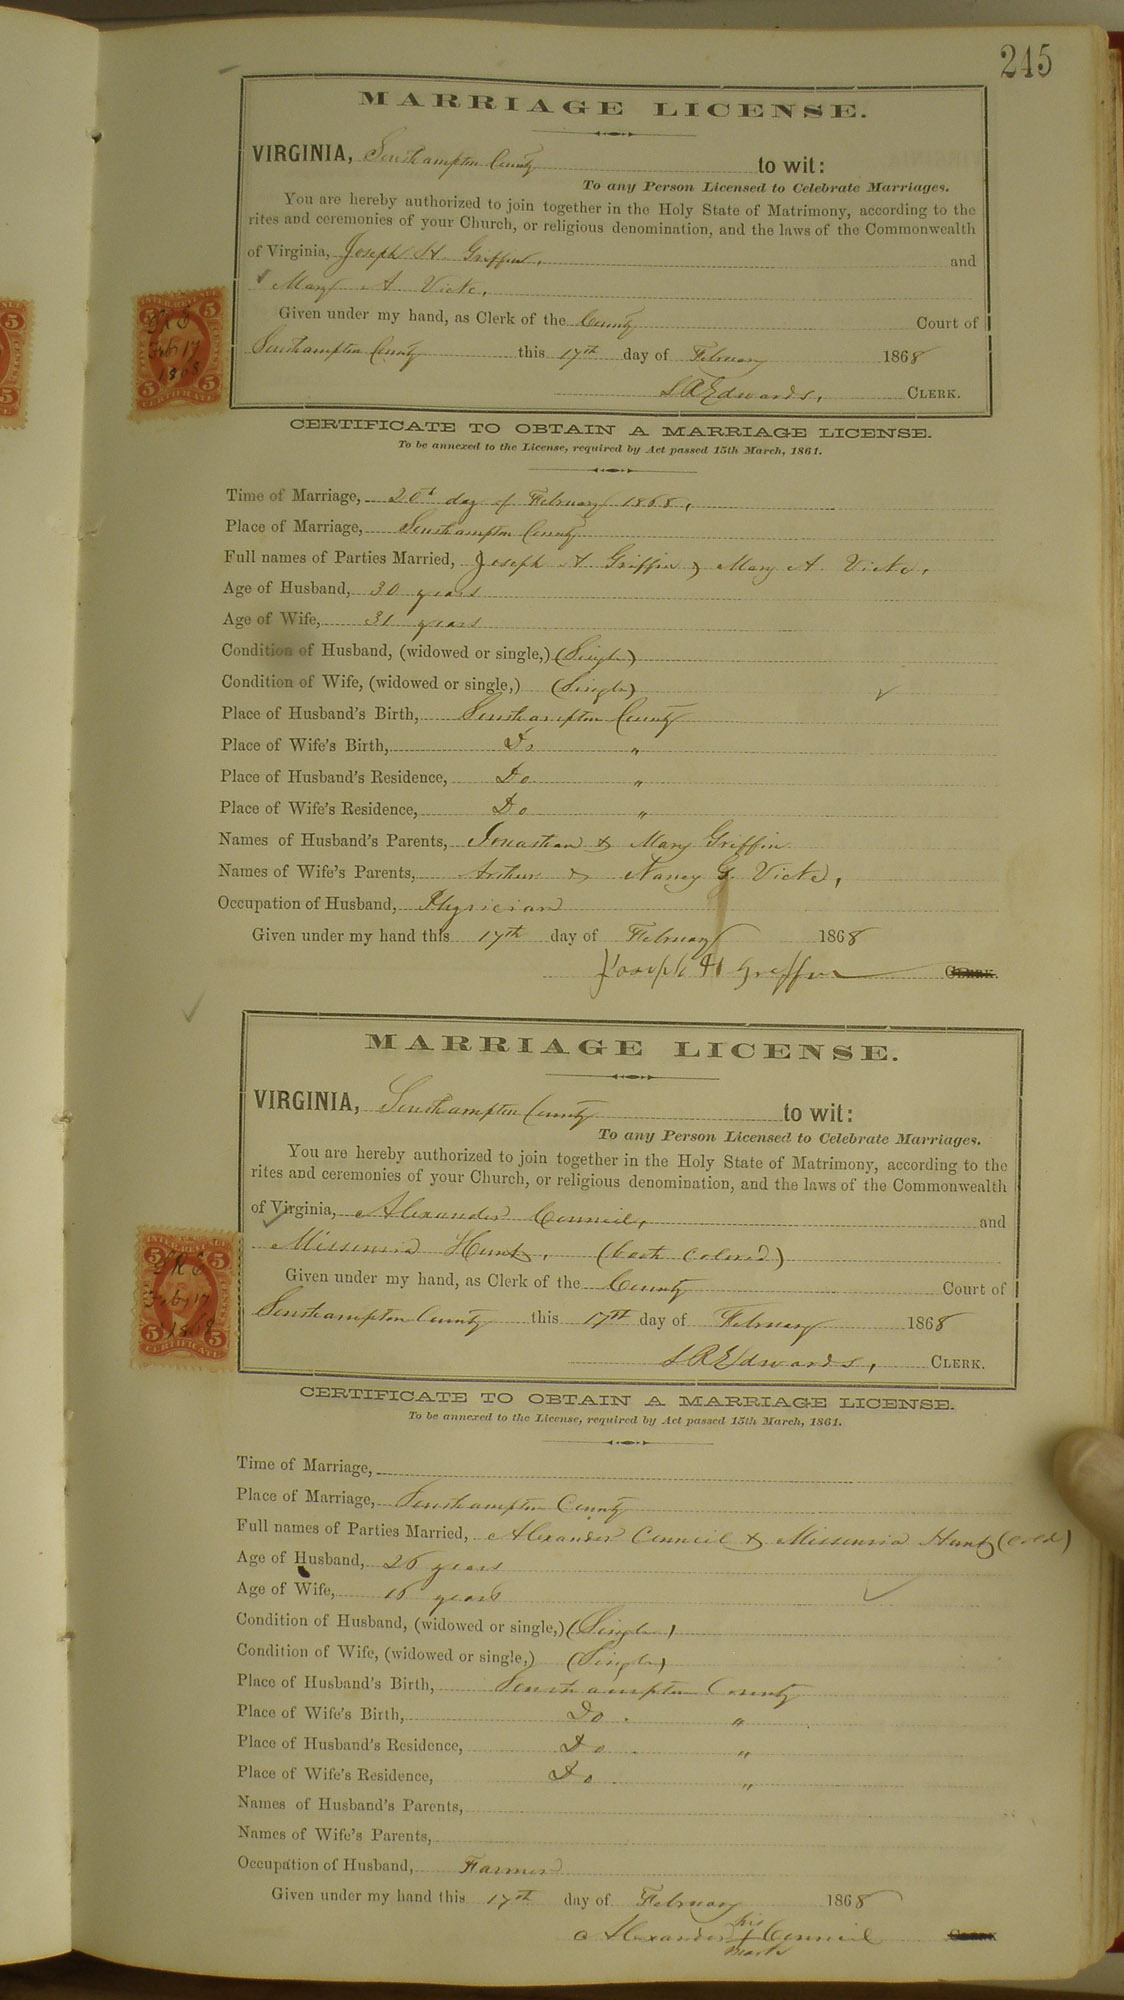 245
MARRIAGE LICENSE.
VIRGINIA, Southampton County to wit:
To any Person Licensed to Celebrate Marriages.
You are hereby authorized to join together in the Holy State of Matrimony, according to the
rites and ceremonies of your Church, or religious denomination, and the laws of the Commonwealth
of Virginia, Joseph H. Griffin, and
Mary A Vick,
Given under my hand, as Clerk of the County Court of
Southampton County this 17th day of February 1868
L R Edwards, CLERK.
INTER. REVENUE
5 5
Feb 17
1868
5 5
CERTIFICATE
CERTIFICATE TO OBTAIN A MARRIAGE LICENSE.
To be annexed to the License, required by Act passed 15th March, 1861.
Time of Marriage, 20th day of February 1868,
Place of Marriage, Southampton County
Full names of Parties Married, Joseph H Griffin & Mary A. Vick,
Age of Husband, 30 years
Age of Wife, 31 years
Condition of Husband, (widowed or single,) (Single)
Condition of Wife, (widowed or single,) (Single)
Place of Husband's Birth, Southampton County
Place of Wife's Birth, Do "
Place of Husband's Residence, Do "
Place of Wife's Residence, Do "
Names of Husband's Parents, Jonathan & Mary Griffin
Names of Wife's Parents, Arthur & Nancy G. Vick,
Occupation of Husband, Physician
Given under my hand this 17th day of February 1868
Joseph H Griffin CLERK.
MARRIAGE LICENSE.
VIRGINIA, Southampton County to wit:
To any Person Licensed to Celebrate Marriages.
You are hereby authorized to join together in the Holy State of Matrimony, according to the
rites and ceremonies of your Church, or religious denomination, and the laws of the Commonwealth
of Virginia, Alexander Council, and
Missouria Hunt, (both colored)
Given under my hand, as Clerk of the County Court of
Southampton County this 17th day of February 1868
L R Edwards, CLERK.
INTER. REVENUE
5 5
Feby 17
1868
5 5
CERTIFICATE
CERTIFICATE TO OBTAIN A MARRIAGE LICENSE.
To be annexed to the License, required by Act passed 15th March, 1861.
Time of Marriage,
Place of Marriage, Southampton County
Full names of Parties Married, Alexander Council & Missouria Hunt (cold)
Age of Husband, 26 years
Age of Wife, 16 years
Condition of Husband, (widowed or single,) (Single)
Condition of Wife, (widowed or single,) (Single)
Place of Husband's Birth, Southampton County
Place of Wife's Birth, Do. "
Place of Husband's Residence, Do. "
Place of Wife's Residence, Do "
Names of Husband's Parents,
Names of Wife's Parents,
Occupation of Husband, Farmer
Given under my hand this 17th day of February 1868
his
Alexander + Council CLERK
mark